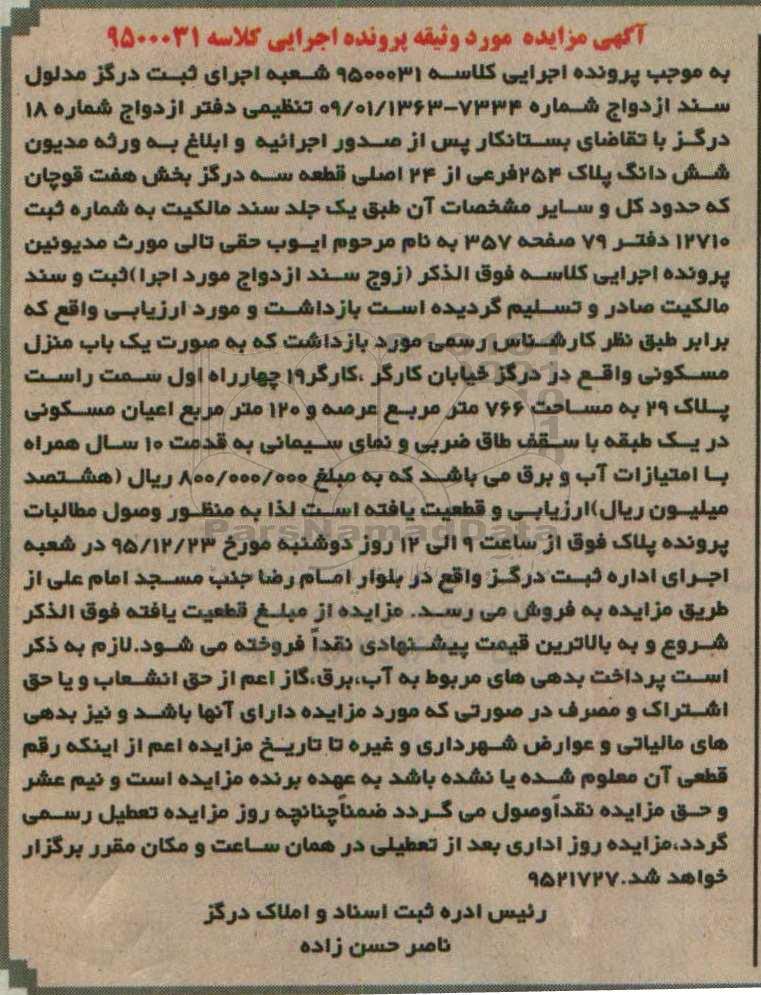 آگهی مزایده مورد وثیقه پرونده اجرایی کلاسه ۹۵۰۰۰۳۱
به موجب پرونده اجرایی کلاسه ۹۵۰۰۰۳۱ شعبه اجرای ثبت درگز مدلول
سند ازدواج شماره ۷۳۳۴-۰۹/۰۱/۱۳۶۳ تنظیمی دفتر ازدواج شماره ۱۸
درگز با تقاضای بستانکار پس از صدور اجرائیه و ابلاغ به ورثه مدیون
شش دانگ پلاک ۲۵۴فرعی از ۲۴ اصلی قطعه سه درگز بخش هفت قوچان
که حدود کل و سایر مشخصات آن طبق یک جلد سند مالکیت به شماره ثبت
۱۲۷۱۰ دفتر ۷۹ صفحه ۳۵۷ به نام مرحوم ایوب حقی تالی مورث مدیونین
پرونده اجرایی کلاسه فوق الذکر (زوج سند ازدواج مورد اجرا)ثبت و سند
مالکیت صادر و تسلیم گردیده است بازداشت و مورد ارزیابی واقع که
برابر طبق نظر کارشناس رسمی مورد بازداشت که به صورت یک باب منزل
مسکونی واقع در درگز خیابان کارگر ،کارگر۱۹ چهارراه اول سمت راست
پلاک ۲۹ به مساحت ۷۶۶ متر مربع عرصه و ۱۲۰ متر مربع اعیان مسکونی
در یک طبقه با سقف طاق ضربی و نمای سیمانی به قدمت ۱۰ سال همراه
با امتیازات آب و برق می باشد که به مبلغ ۸۰۰/۰۰۰/۰۰۰ ریال (هشتصد
میلیون ریال)ارزیابی و قطعیت یافته است لذا به منظور وصول مطالبات
پرونده پلاک فوق از ساعت ۹ الی ۱۲ روز دوشنبه مورخ ۹۵/۱۲/۲۳ در شعبه
اجرای اداره ثبت درگز واقع در بلوار امام رضا جنب مسجد امام علی از
طریق مزایده به فروش می رسد. مزایده از مبلغ قطعیت یافته فوق الذکر
شروع و به بالاترین قیمت پیشنهادی نقداً فروخته می شود.لازم به ذکر
است پرداخت بدهی های مربوط به آب،برق،گاز اعم از حق انشعاب و یا حق
اشتراک و مصرف در صورتی که مورد مزایده دارای آنها باشد و نیز بدهی
های مالیاتی و عوارض شهرداری و غیره تا تاریخ مزایده اعم از اینکه رقم
قطعی آن معلوم شده یا نشده باشد به عهده برنده مزایده است و نیم عشر
و حق مزایده نقداًوصول می گردد ضمناًچنانچه روز مزایده تعطیل رسمی
گردد،مزایده روز اداری بعد از تعطیلی در همان ساعت و مکان مقرر برگزار
خواهد شد.۹۵۲۱۷۲۷
رئیس ادره ثبت اسناد و املاک درگز
ناصر حسن زاده
ParsNamadData